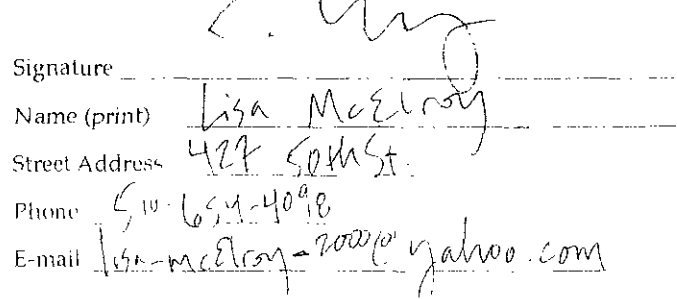 Signature
Name (print) Lisa McElroy
Street Address 427 50th St.
Phone 510-654-4098
E-mail lisa-mcElroy-2000@yahoo.com